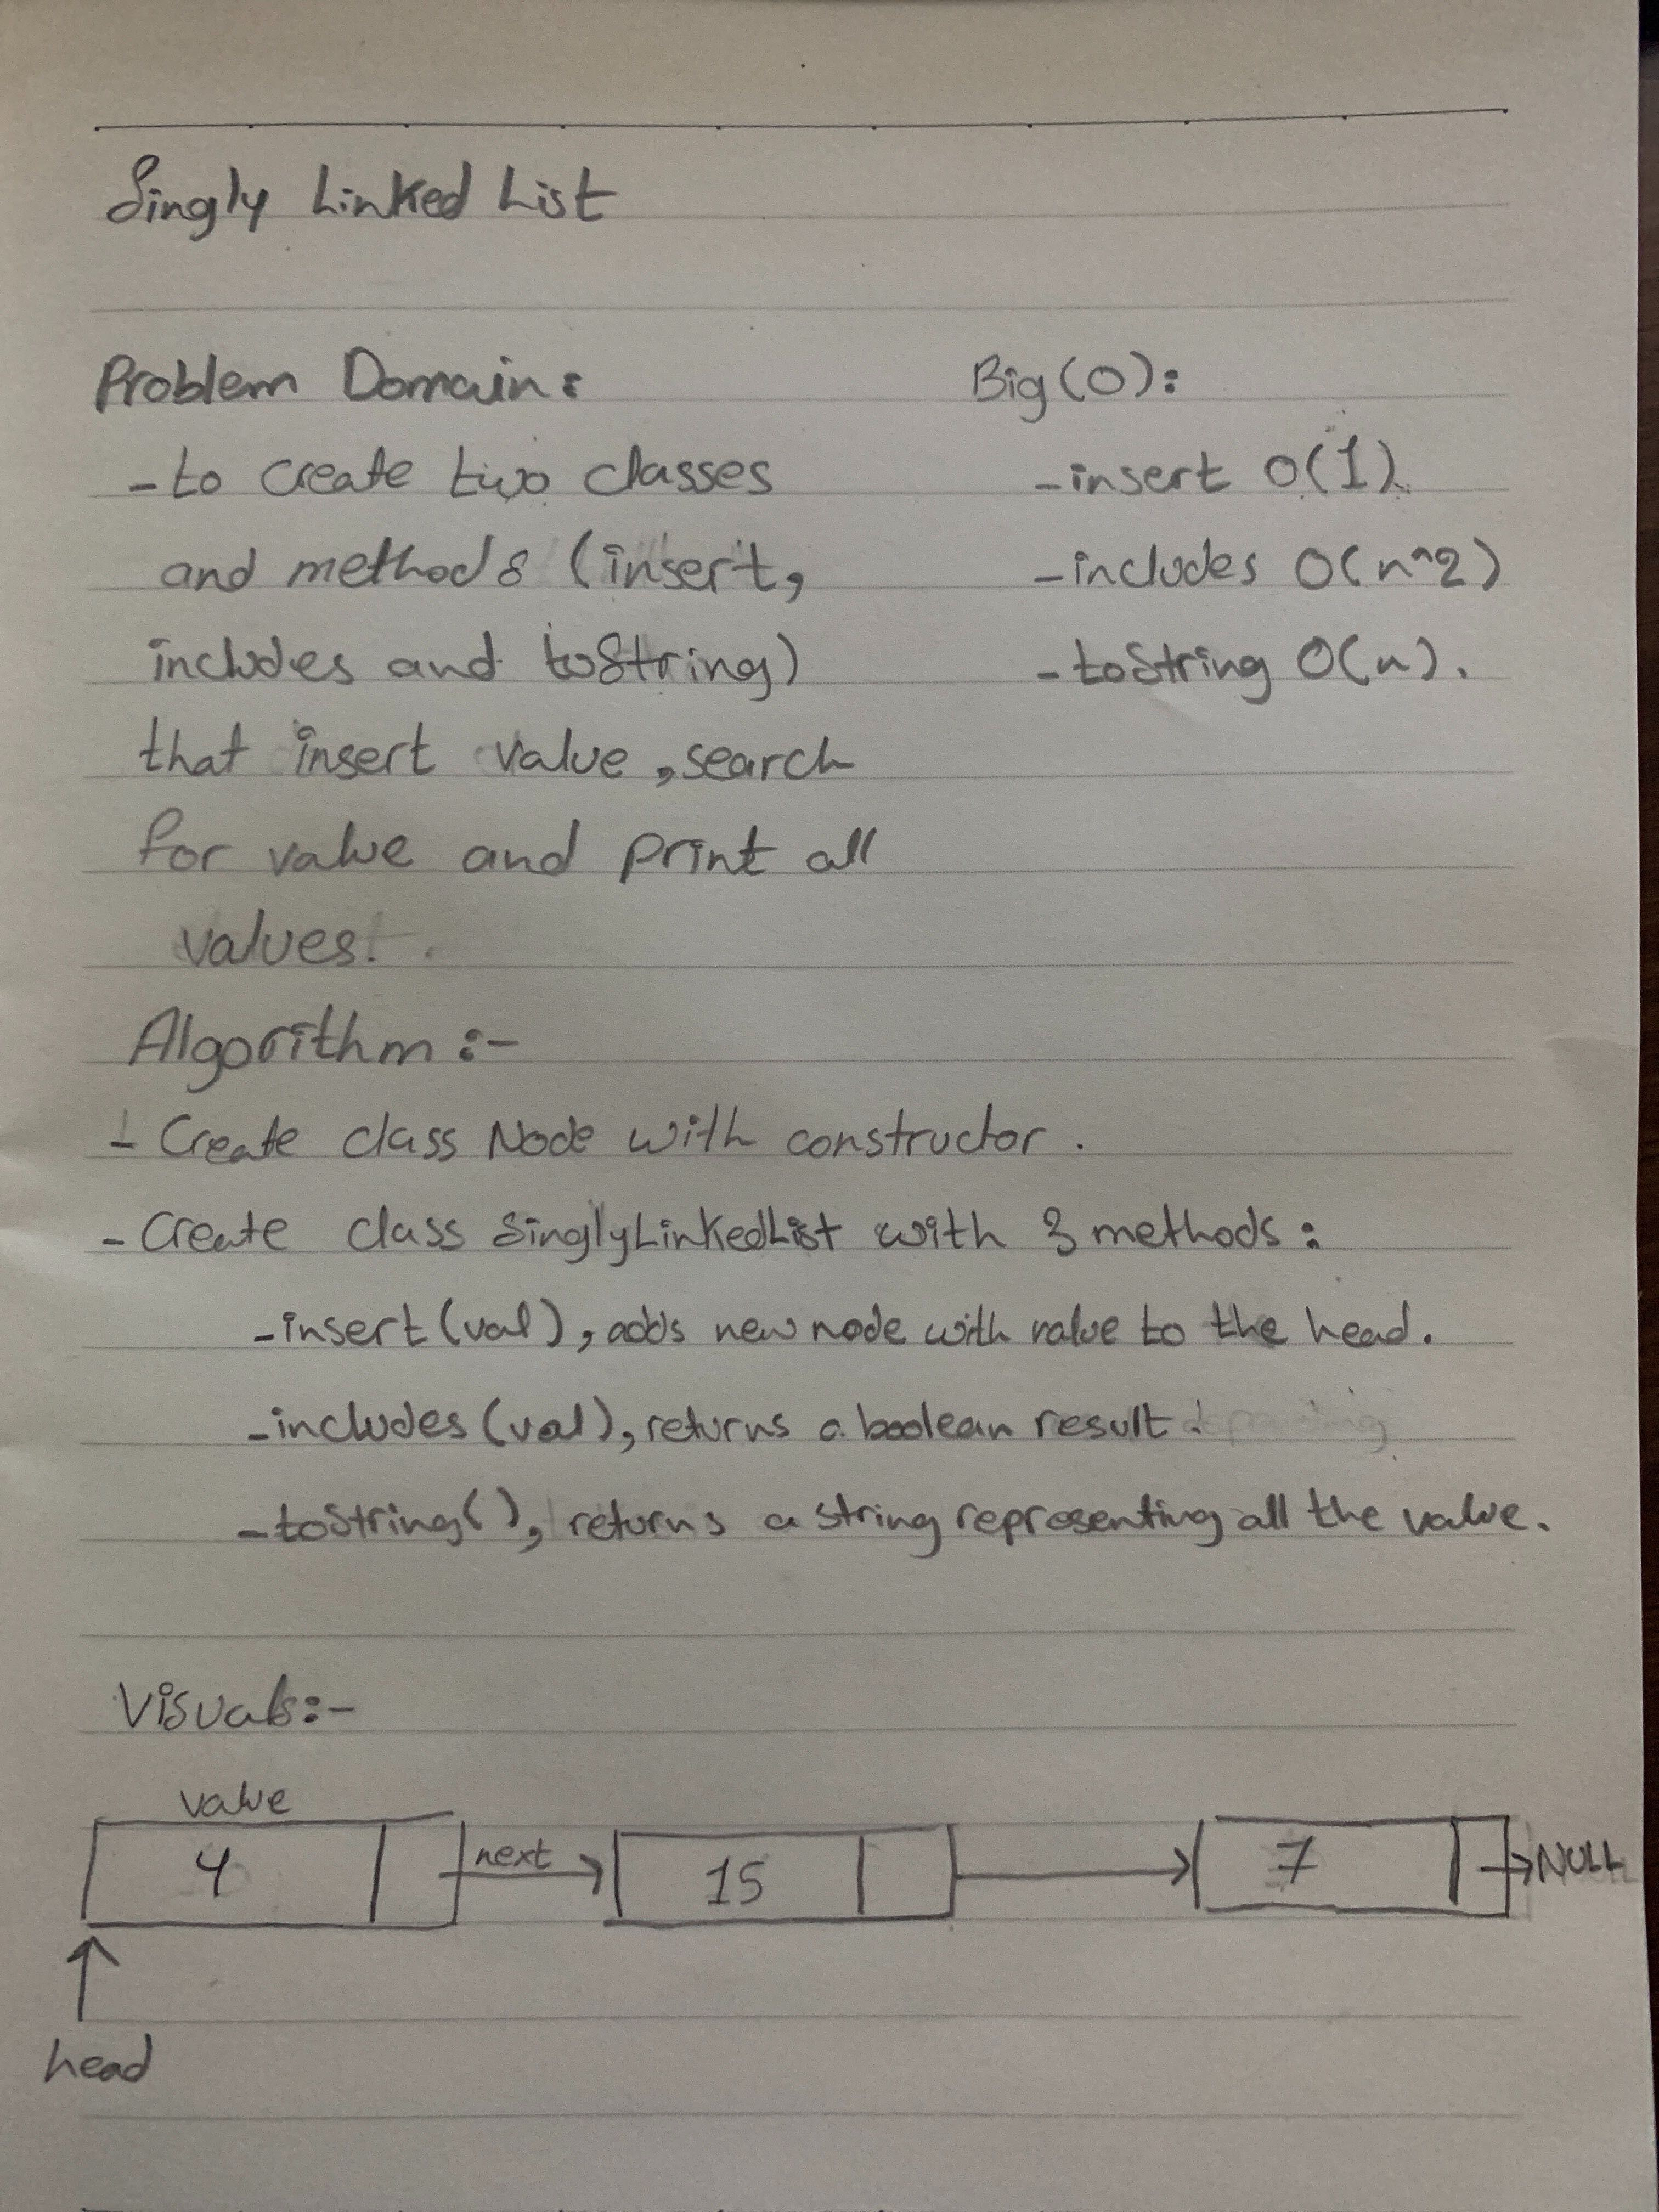 Singly Linked List
Problem Domain:
- to create two classes
and methods (insert,
includes and toString)
that insert value, search
for value and print all
values.
Big(O):
- insert O(1)
- includes O(n^2)
- toString O(n).
Algorithm:-
- Create class Node with constructor.
- Create class SinglyLinkedList with 3 methods:
- insert(val), adds new node with value to the head.
- includes(val), returns a boolean result.
- toString(), returns a string representing all the value.
Visuals:-
value
4 next 15 7 NULL
head